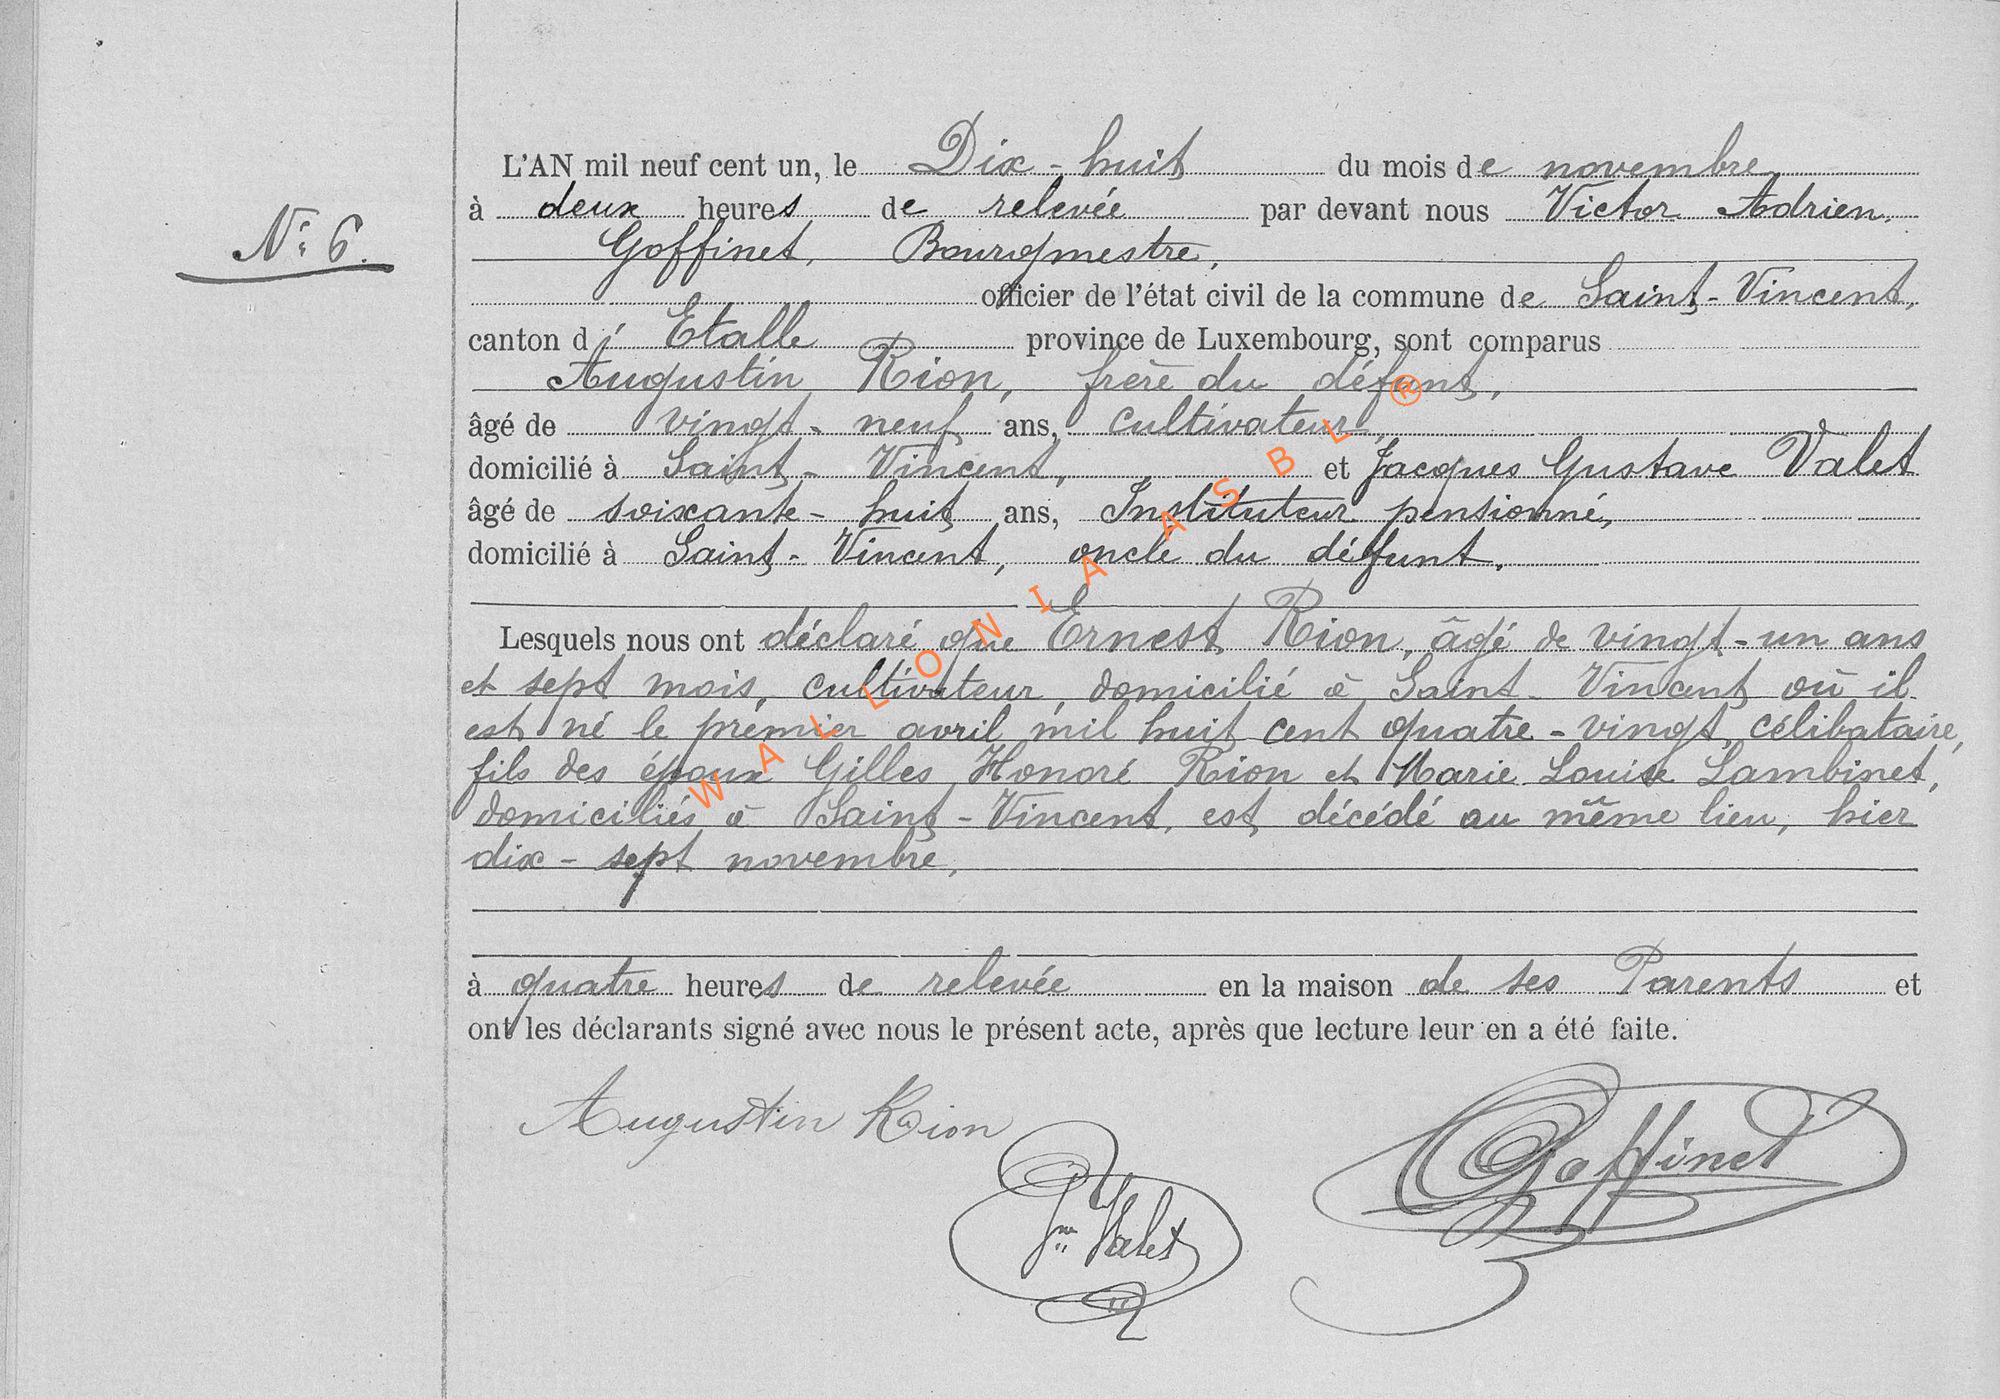 N° 6.
L'AN mil neuf cent un, le Dix-huit du mois de novembre
à deux heures de relevée par devant nous Victor Adrien
Goffinet, Bourgmestre,
officier de l'état civil de la commune de Saint-Vincent,
canton d' Etalle province de Luxembourg, sont comparus
Augustin Rion, frère du défunt,
âgé de vingt-neuf ans, cultivateur,
domicilié à Saint-Vincent, et Jacques Gustave Valet
âgé de soixante-huit ans, Instituteur pensionné,
domicilié à Saint-Vincent, oncle du défunt.
Lesquels nous ont déclaré que Ernest Rion, âgé de vingt-un ans
et sept mois, cultivateur, domicilié à Saint-Vincent où il
est né le premier avril mil huit cent quatre-vingt, célibataire,
fils des époux Gilles Honoré Rion et Marie Louise Lambinet,
domiciliés à Saint-Vincent, est décédé au même lieu, hier
dix-sept novembre,
à quatre heures de relevée en la maison de ses Parents et
ont les déclarants signé avec nous le présent acte, après que lecture leur en a été faite.
Augustin Rion
Valet
Goffinet
WALLONIA ASBL ®